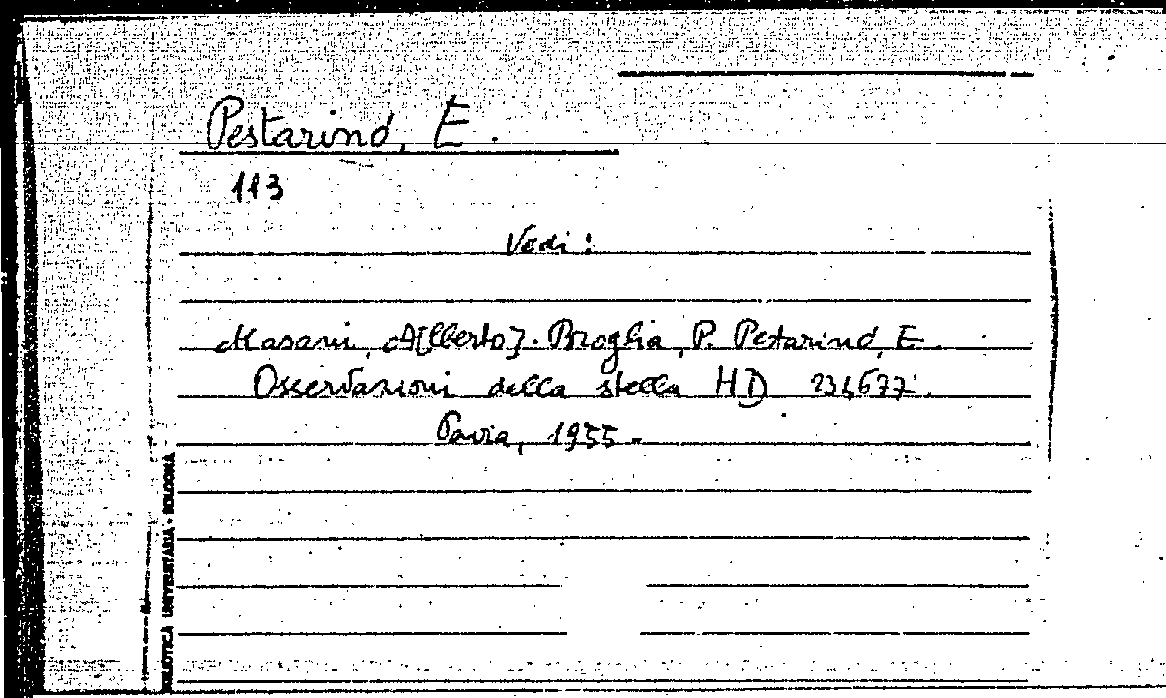 Pestarino, E.
113
Vedi:
Masani, A[lberto]. Broglia, P. Pestarino, E.
Osservazioni della stella HD 234677.
Pavia, 1955.
BIBLIOTECA UNIVERSITARIA - BOLOGNA